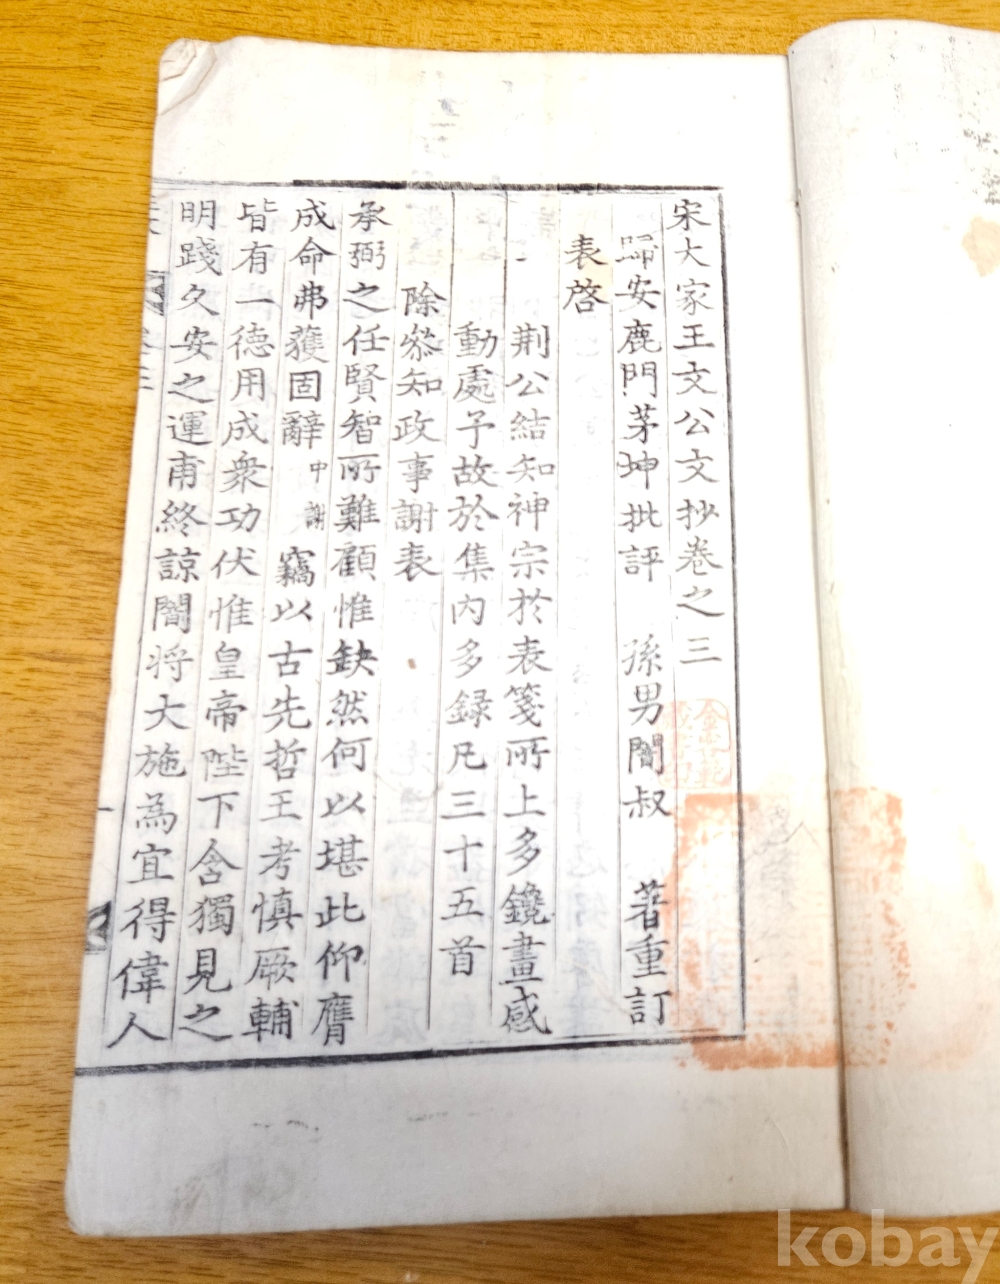 宋大家王文公文抄卷之三
歸安鹿門茅坤批評 孫男闇叔 著重訂
表啓
荆公結知神宗於表箋所上多鑱畫感
動處予故於集內多録凡三十五首
除叅知政事謝表
承弼之任賢智所難顧惟缺然何以堪此仰膺
成命弗獲固辭中謝竊以古先哲王考慎厥輔
皆有一德用成衆功伏惟皇帝陛下含獨見之
明踐久安之運甫終諒闇将大施為宜得偉人
kobay